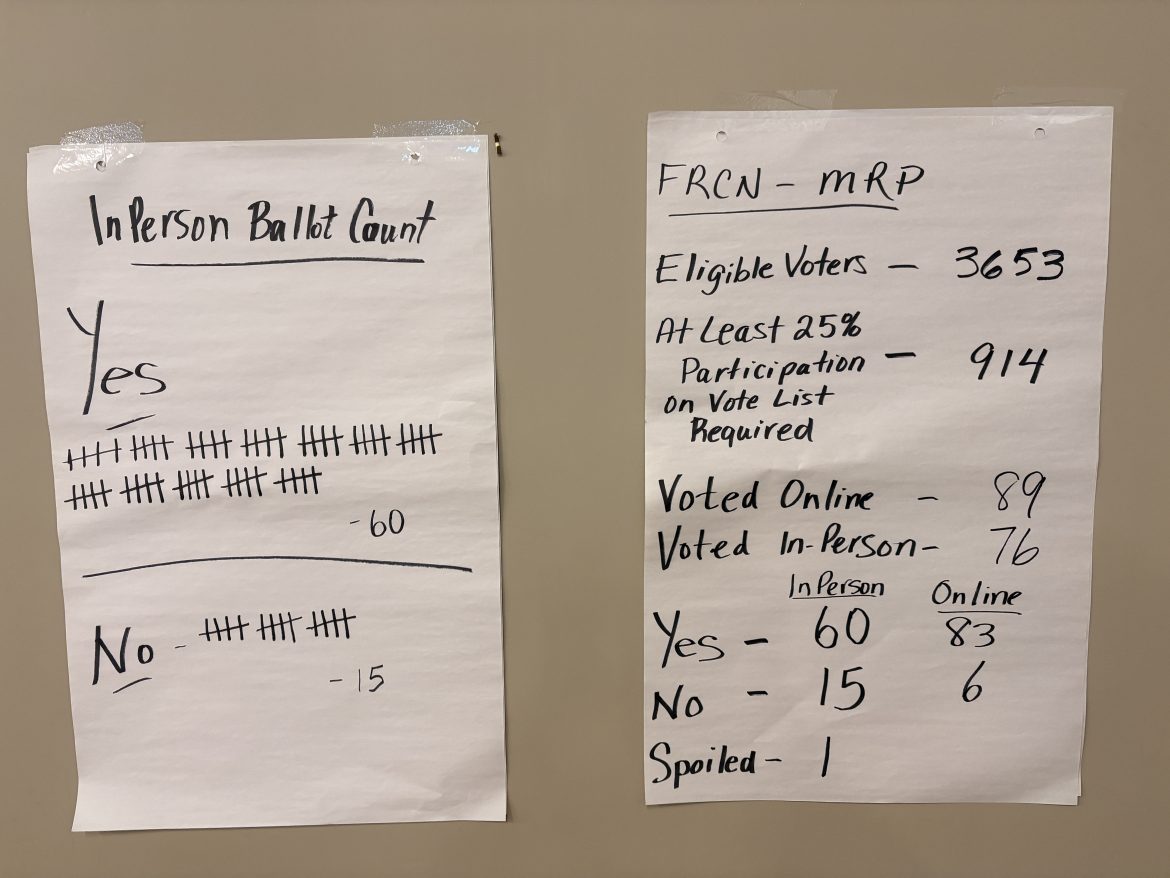 In Person Ballot Count
Yes
- 60
No -
- 15
FRCN - MRP
Eligible Voters - 3653
At Least 25%
Participation - 914
on Vote List
Required
Voted Online - 89
Voted In-Person - 76
In Person Online
Yes - 60 83
No - 15 6
Spoiled - 1